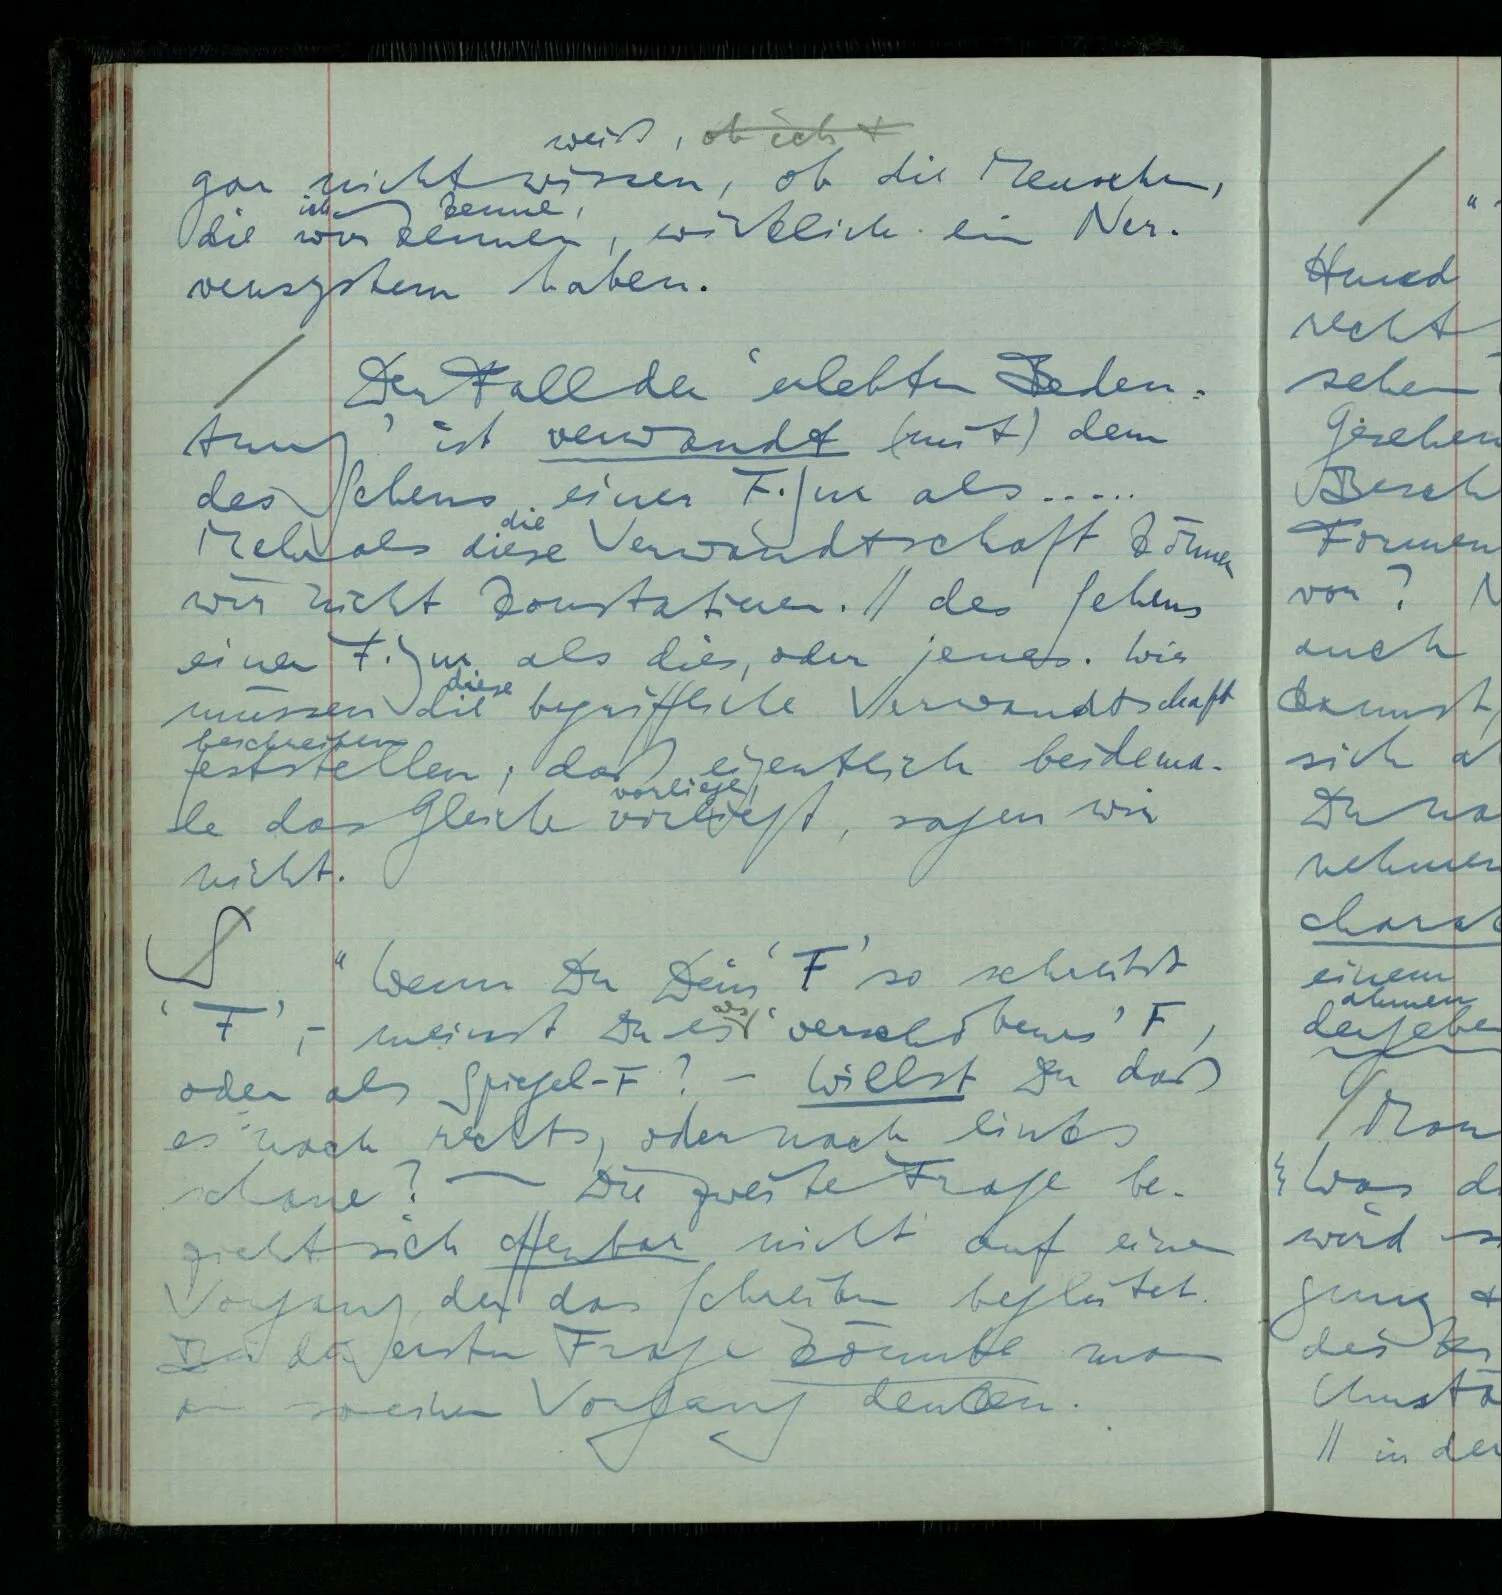 weiß, ob ich
gar nicht wissen, ob die Menschen,
ich kenne,
die wir kennen, wirklich ein Ner-
vensystem haben.
Der Fall der 'erlebten Bedeu-
tung' ist verwandt (mit) dem
des Sehens einer Figur als.....
die
Mehr als diese Verwandtschaft können
wir nicht konstatieren. // des Sehens
einer Figur als dies, oder jenes. Wir
diese
müssen die begriffliche Verwandtschaft
beschreiben
feststellen; daß eigentlich beidema-
vorliege,
le das Gleiche vorliegt, sagen wir
nicht.
"Wenn Du Dein 'F' so schreibst
'F', – meinst Du es als 'verschobenes' F,
oder als Spiegel-F? – Willst Du daß
es nach rechts, oder nach links
schaue? — Die zweite Frage be-
zieht sich offenbar nicht auf einen
Vorgang der das Schreiben begleitet.
Bei der ersten Frage könnte man
an so einen Vorgang denken.
"
Hund
recht
sehen
Gesehen
Besch
Formen
vor? N
auch
kannst,
sich
Du
nehmen
charak
einem
ahmen
dergebe
Man
Was
wird
gung
des
Umstä
// in der